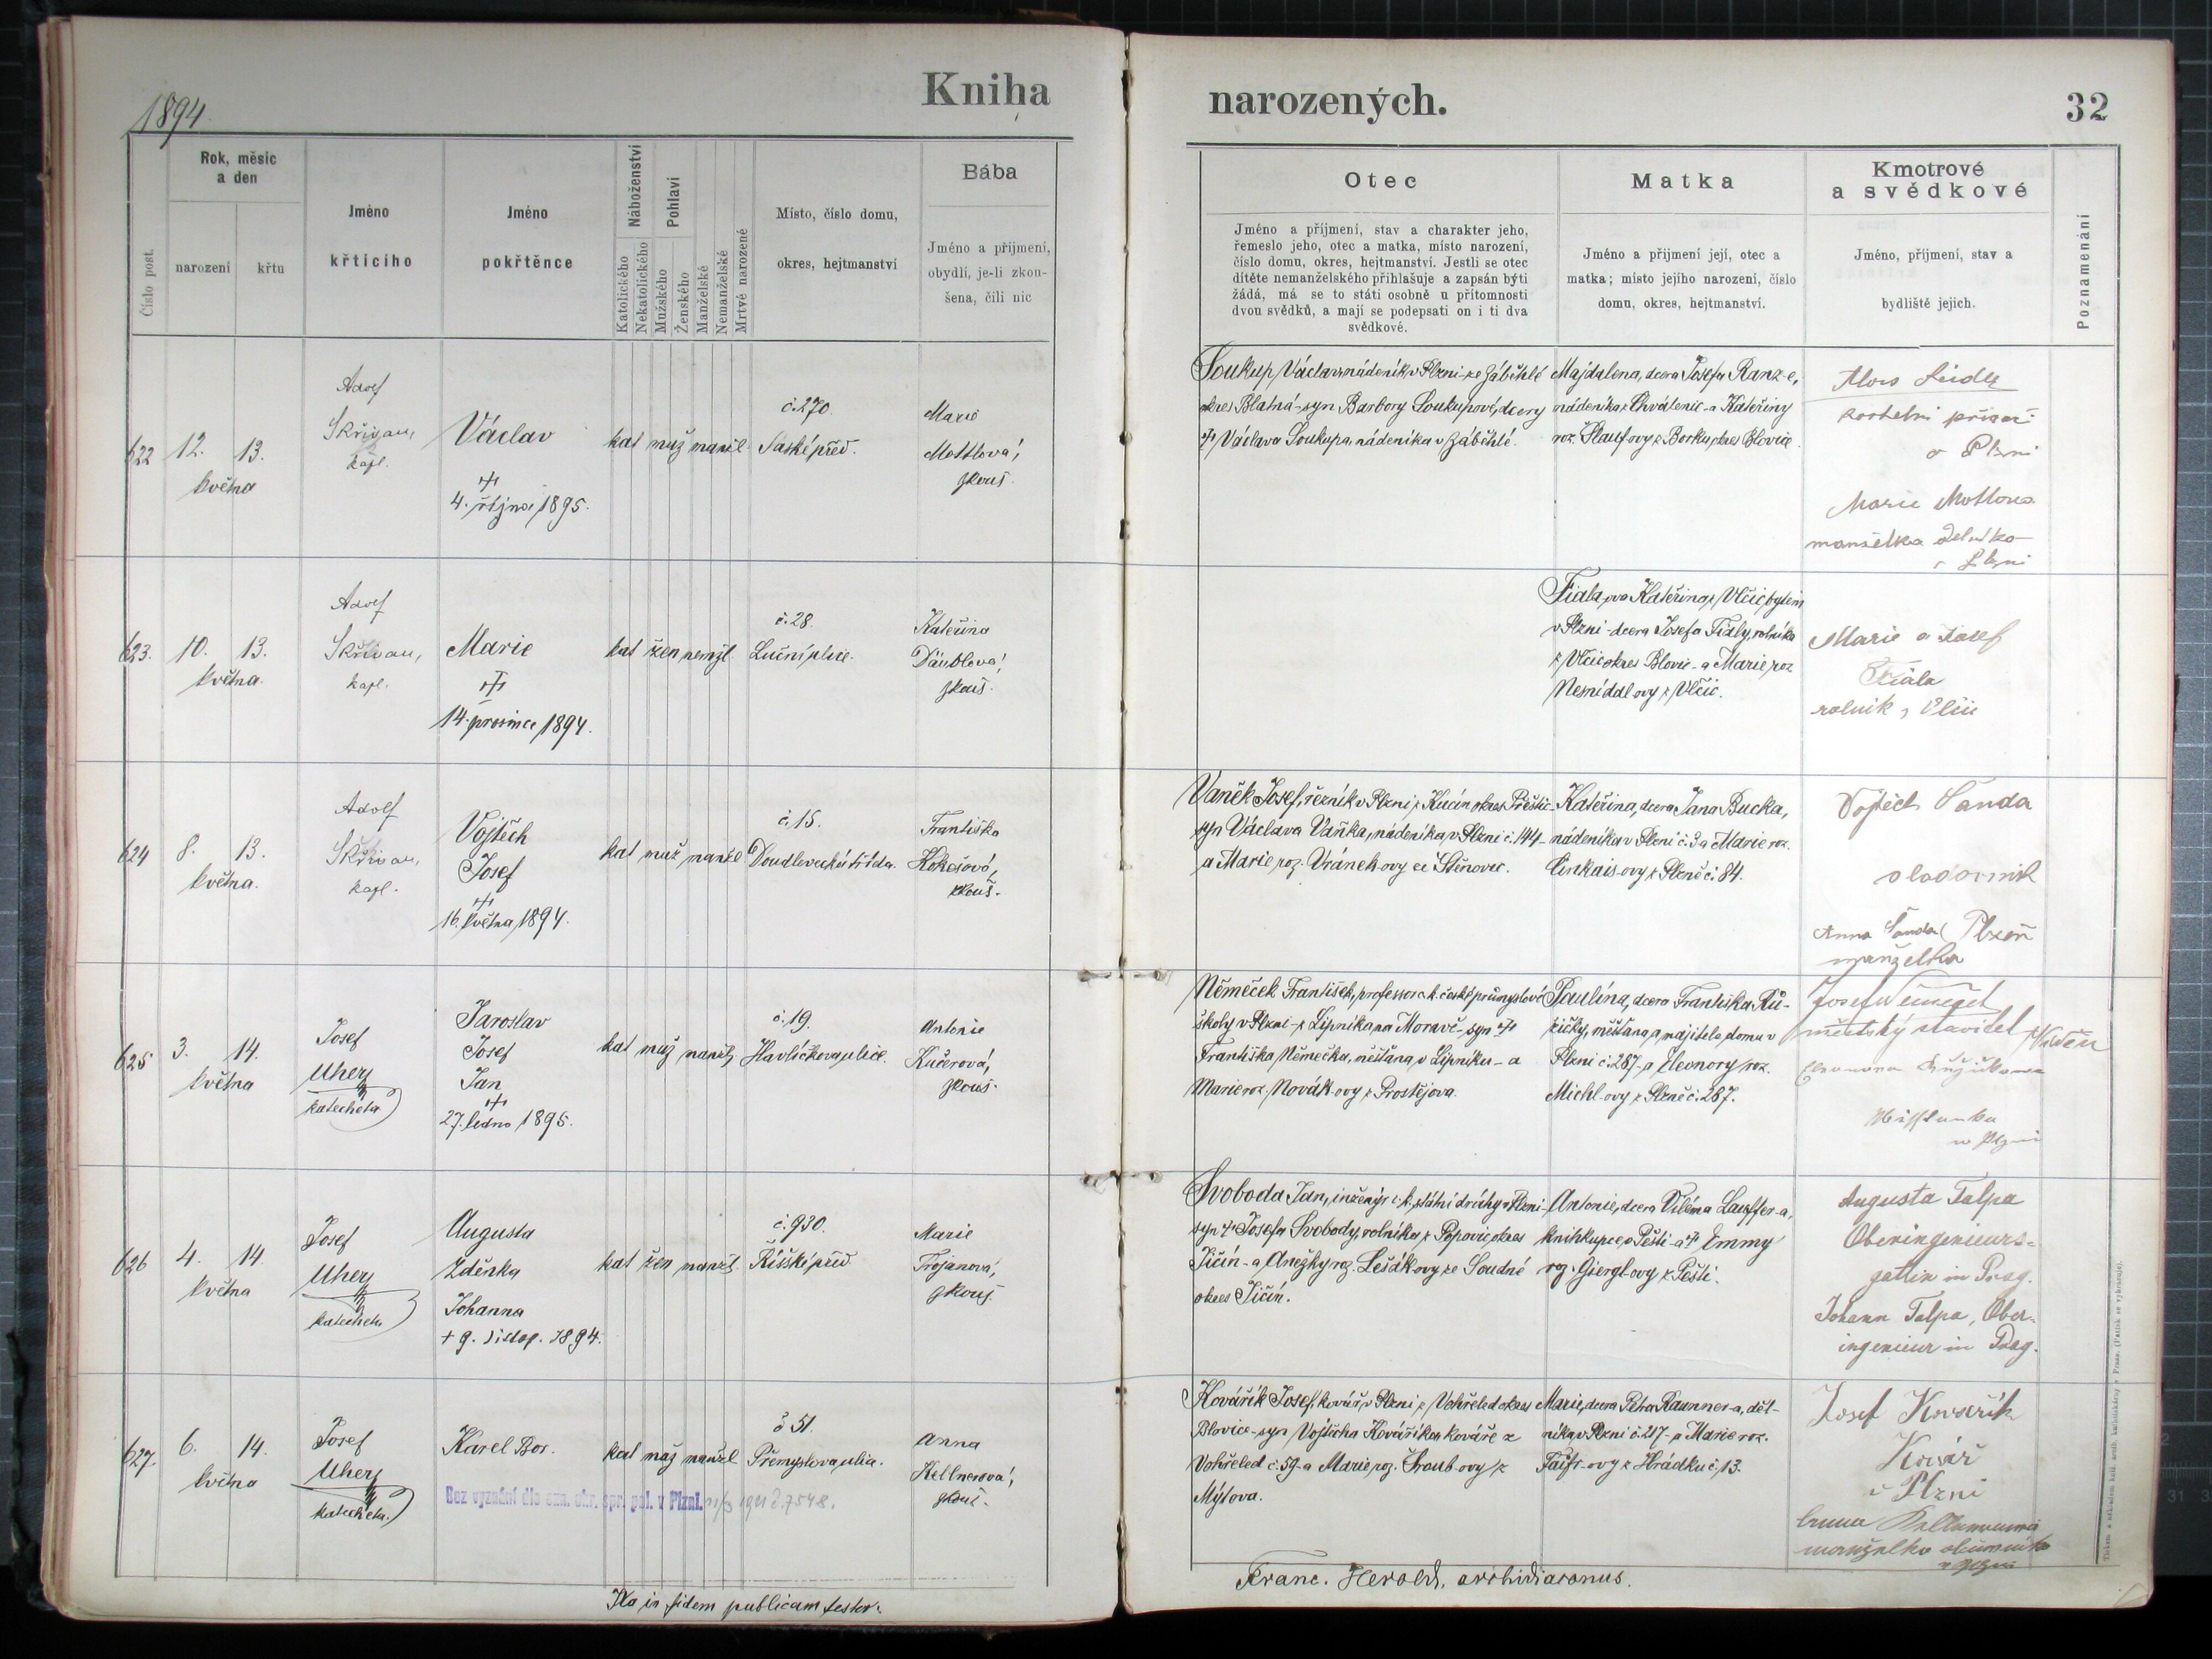 1894.
Kniha
narozených.
32
Číslo post.
Rok, měsíc
a den
narození
křtu
Jméno
křtícího
Jméno
pokřtěnce
Náboženství
Katolického
Nekatolického
Pohlaví
Mužského
Ženského
Manželské
Nemanželské
Mrtvě narozené
Místo, číslo domu,
okres, hejtmanství
Bába
Jméno a přijmení,
obydlí, je-li zkou-
šena, čili nic
Otec
Jméno a příjmení, stav a charakter jeho,
řemeslo jeho, otec a matka, místo narození,
číslo domu, okres, hejtmanství. Jestli se otec
dítěte nemanželského přihlašuje a zapsán býti
žádá, má se to státi osobně u přítomnosti
dvou svědků, a mají se podepsati on i ti dva
svědkové.
Matka
Jméno a přijmení její, otec a
matka; místo jejího narození, číslo
domu, okres, hejtmanství.
Kmotrové
a svědkové
Jméno, příjmení, stav a
bydliště jejich.
Poznamenání
622
12. 13.
května
Adolf
Skřivan,
kapl.
Václav
4. října 1895.
kat muž manžel
č. 270.
Saské předˇ.
Marie
Mottlová,
zkouš.
Soukup Václav, nádeník v Plzni - ze Záběhlé
okres Blatná - syn Barbory Soukupové, dcery
Václava Soukupa, nádeníka v Záběhlé.
Majdalena, dcera Josefa Ranz-e,
nádeníka z Chválenic - a Kateřiny
roz. Slaufovy z Borku, okres Blovice.
v Plzni
Marie Mottlova
manželka
v Plzni
623.
10. 13.
května.
Adolf
Skřivan,
kapl.
Marie
14. prosince 1894.
kat žen nemžl
č. 28.
Luční ulice.
Kateřina
Däublová,
zkouš.
Fialova Kateřina z Vlčic, bytem
v Plzni - dcera Josefa Fialy, rolníka
z Vlčic okres Blovic - a Marie roz
Nemídalovy z Vlčic.
Marie a Josef
Fiala
rolník z Vlčic
624
8. 13.
května.
Adolf
Skřivan,
kapl.
Vojtěch
Josef
16. května 1894.
kat muž manžel
č. 15.
Doudlevecká třída.
Františka
Kokešová,
zkouš.
Vaněk Josef, řezník v Plzni z Kucín okres Přeštic -
syn Václava Vaňka, nádeníka v Plzni č. 144 -
a Marie roz. Vránek-ovy ze Stěnovic.
Kateřina, dcera Jana Bucka,
nádeníka v Plzni č. 3 a Marie roz.
Činkais-ovy z Plzně č. 84.
Vojtěch Šanda
sladovník
Anna Šanda Plzeň
manželka
625
3. 14.
května
Josef
Uherz
katecheta
Jaroslav
Josef
Jan
27. ledna 1895.
kat muž manžl.
č. 19.
Havlíčkova ulice.
Antonie
Kučerová,
zkouš.
Němeček František, professor c. k. české průmyslové
školy v Plzni - z Lipníka na Moravě - syn
Františka Němečka, měšťana v Lipníku - a
Marie roz. Novák-ovy z Prostějova.
Paulína, dcera Františka Rů-
žičky, měšťana a majitele domu v
Plzni č. 287 - a Eleonory roz.
Michl-ovy z Plzně č. 287.
městský stavitel
Eleonora Růžičkova
626
4. 14.
května
Josef
Uherz
katecheta
Augusta
Zdeňka
Johanna
+ 9. listop. 1894.
kat žen manžl
č. 930.
Říšské předˇ.
Marie
Trojanová,
zkouš.
Svoboda Jan, inženýr c. k. státní dráhy v Plzni -
syn Josefa Svobody, rolníka z Popovic okres
Jičín - a Anežky roz. Lešák-ovy ze Soudné
okres Jičín.
Antonie, dcera Viléma Lauffer-a,
knihkupce v Pešti - a Emmy
roz. Giergl-ovy z Pešti.
Augusta Talpa
Oberingenieurs-
gattin in Prag.
Johann Talpa, Ober-
ingenieur in Prag.
627.
6. 14.
května
Josef
Uherz
katecheta.
Karel Bor.
Bez vyznání dle ozn. okr. spr. pol. v Plzni. 11/3 1921 č. 7548.
kat muž manžel
č 51.
Přemyslova ulice.
Anna
Kellnerová,
zkouš.
Kovářík Josef, kovář v Plzni z Vohřeled okres
Blovice - syn Vojtěcha Kováříka, kováře z
Vohřeled č. 59 - a Marie roz. Šroub-ovy z
Mýtova.
Marie, dcera Petra Raunner-a, děl-
níka v Plzni č. 217 - a Marie roz.
Taifr-ovy z Hrádku č. 13.
Josef Kovařík
Kovář
v Plzni
manželka
v Plzni
Ita in fidem publicam testor.
Franc. Herold, archidiaconus.